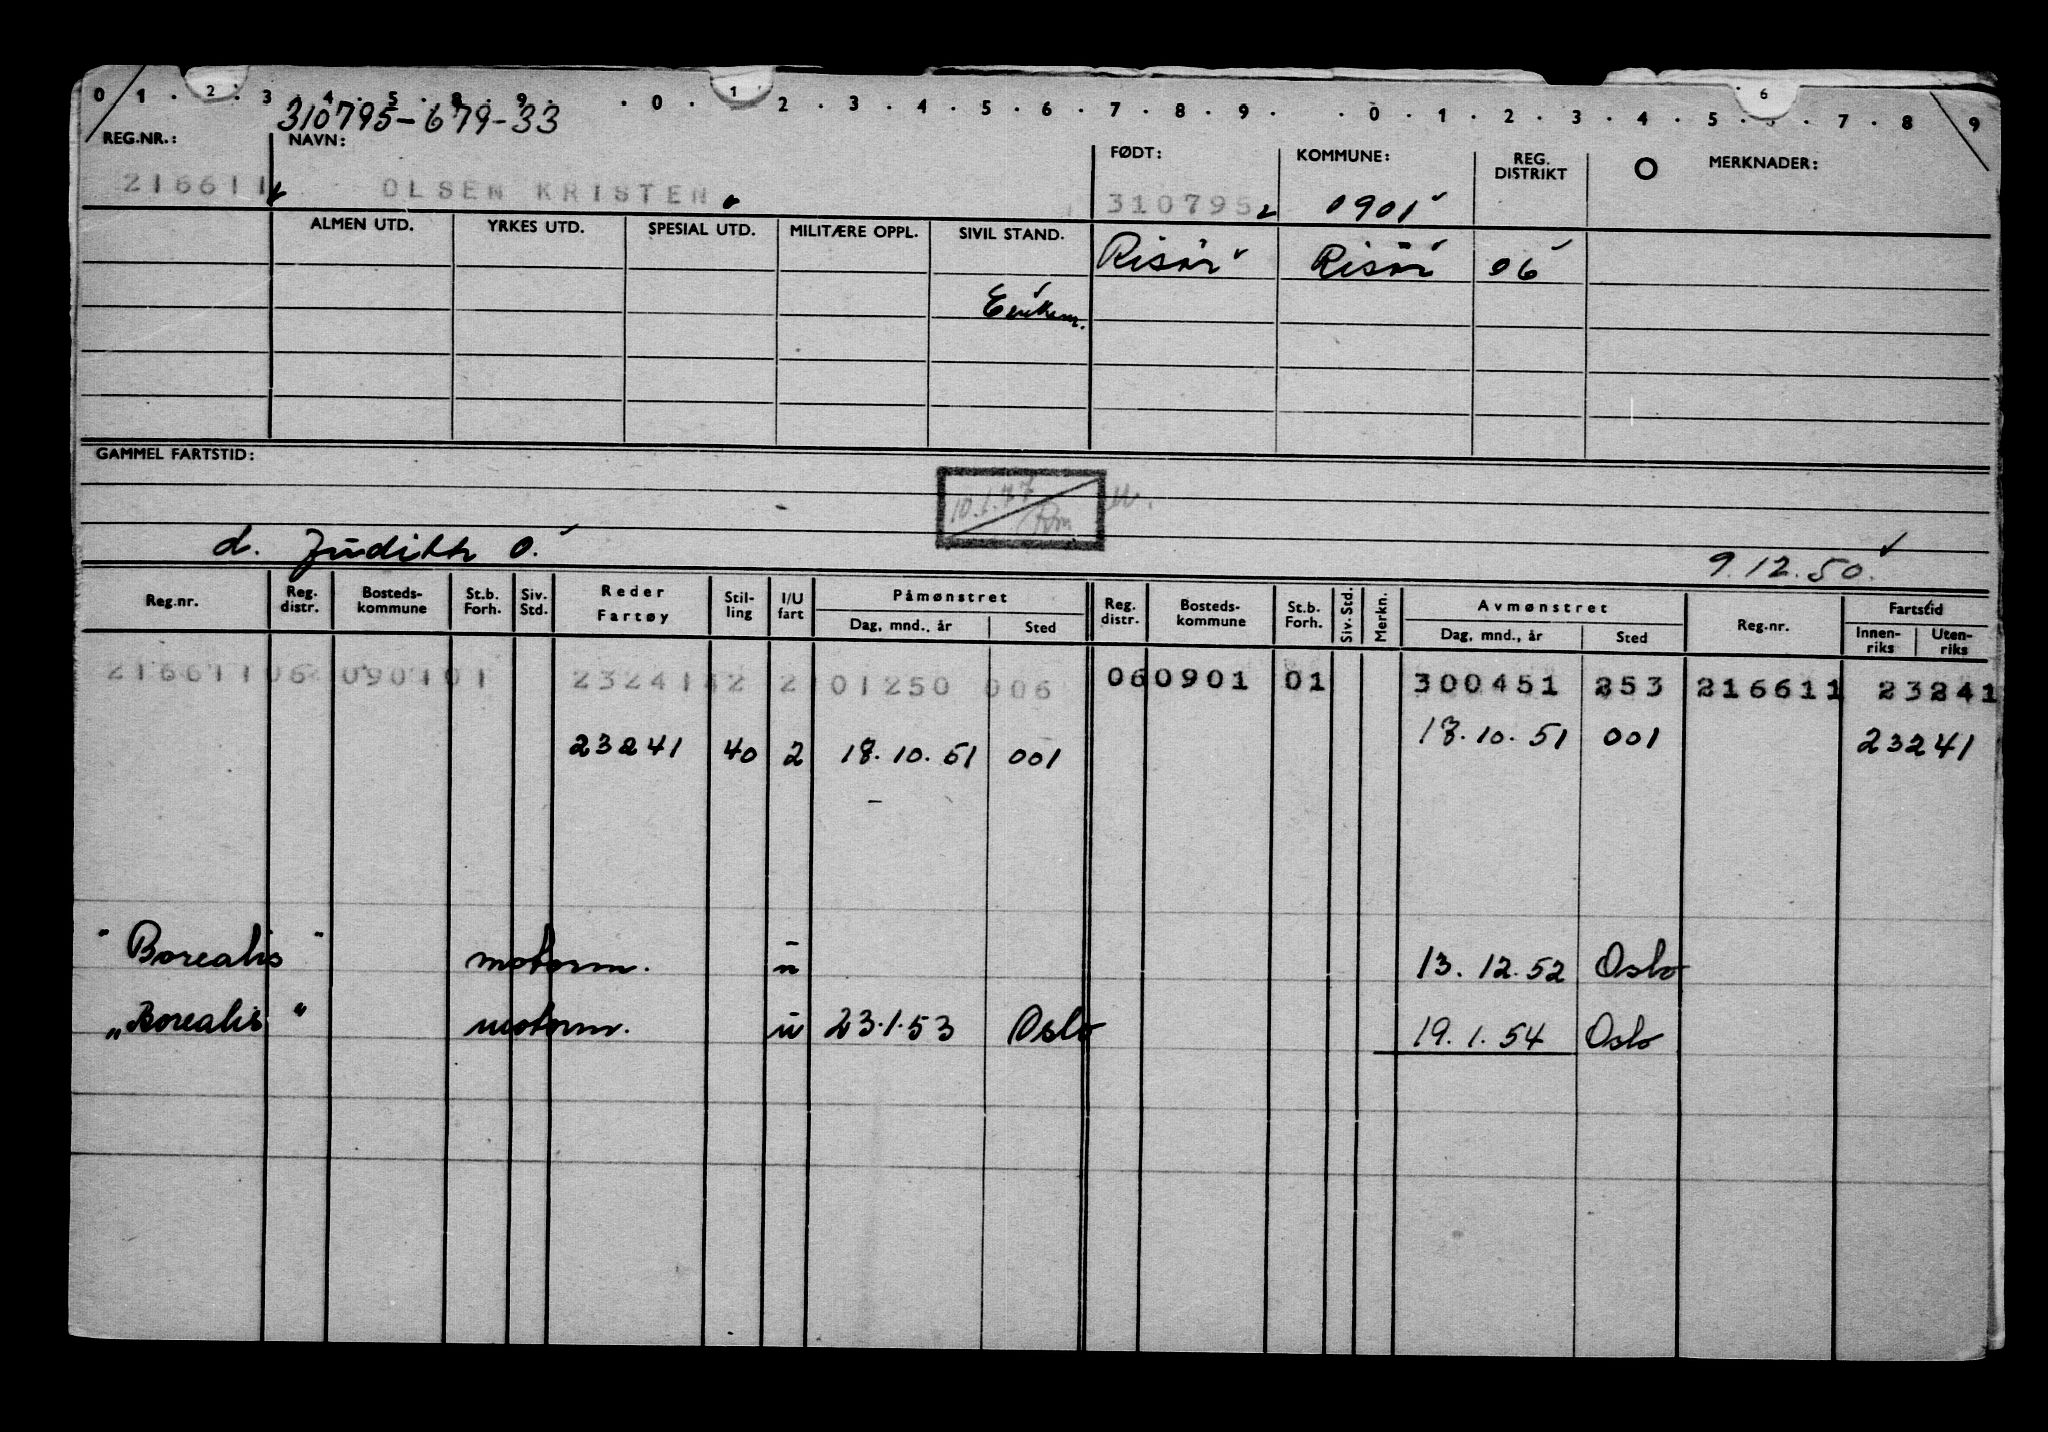 0 1 . 2 . 3 . 4 . 5 . 8 . 9 . . 0 . 1 2 . 3 . 4 . 5 . 6 . 7 . 8 . 9 . . 0 . 1 . 2 . 3 . 4 . 5 . 6 . 7 . 8 9
310795-679-33
REG.NR.: NAVN: FØDT: KOMMUNE: REG. DISTRIKT O MERKNADER:
216611 OLSEN KRISTEN 310795 0901
ALMEN UTD. YRKES UTD. SPESIAL UTD. MILITÆRE OPPL. SIVIL STAND. Risör Risör 06
Enkem.
GAMMEL FARTSTID:
10.1.77
d. Judith O. 9.12.50.
Reg.nr. Reg. distr. Bosteds-kommune St.b. Forh. Siv. Std. Reder Fartøy Stil-ling I/U fart Påmønstret Reg. distr. Bosteds-kommune St.b. Forh. Siv. Std. Merkn. Avmønstret Reg.nr. Fartstid
Dag, mnd., år Sted Dag, mnd., år Sted Innen-riks Uten-riks
216611 06 0901 01 23241 2 2 01250 006 06 0901 01 300451 253 216611 23241
23241 40 2 18.10.51 001 18.10.51 001 23241
"Borealis" motorm. u 13.12.52 Oslo
"Borealis" motorm. u 23.1.53 Oslo 19.1.54 Oslo